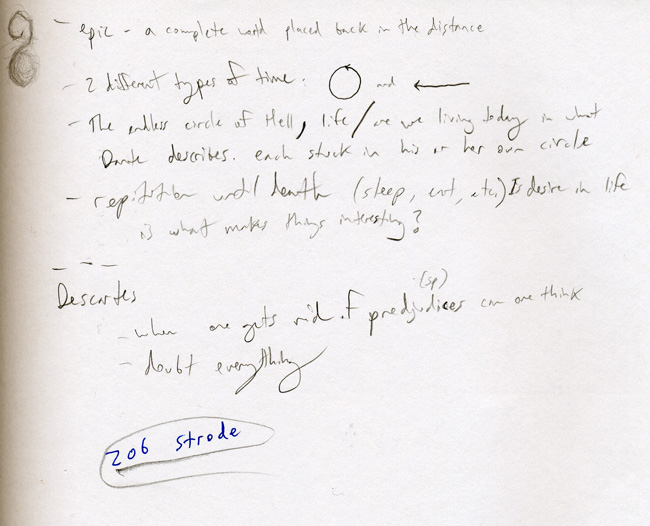 - epic - a complete world placed back in the distance
- 2 different types of time. and
- The endless circle of Hell, life / are we living today in what
Dante describes. each stuck in his or her own circle
- repitition until death (sleep, eat, etc.) Is desire in life
is what makes things interesting?
- - -
(sp)
Descartes
- when one gets rid of predjudices can one think
- doubt everything
206 strode